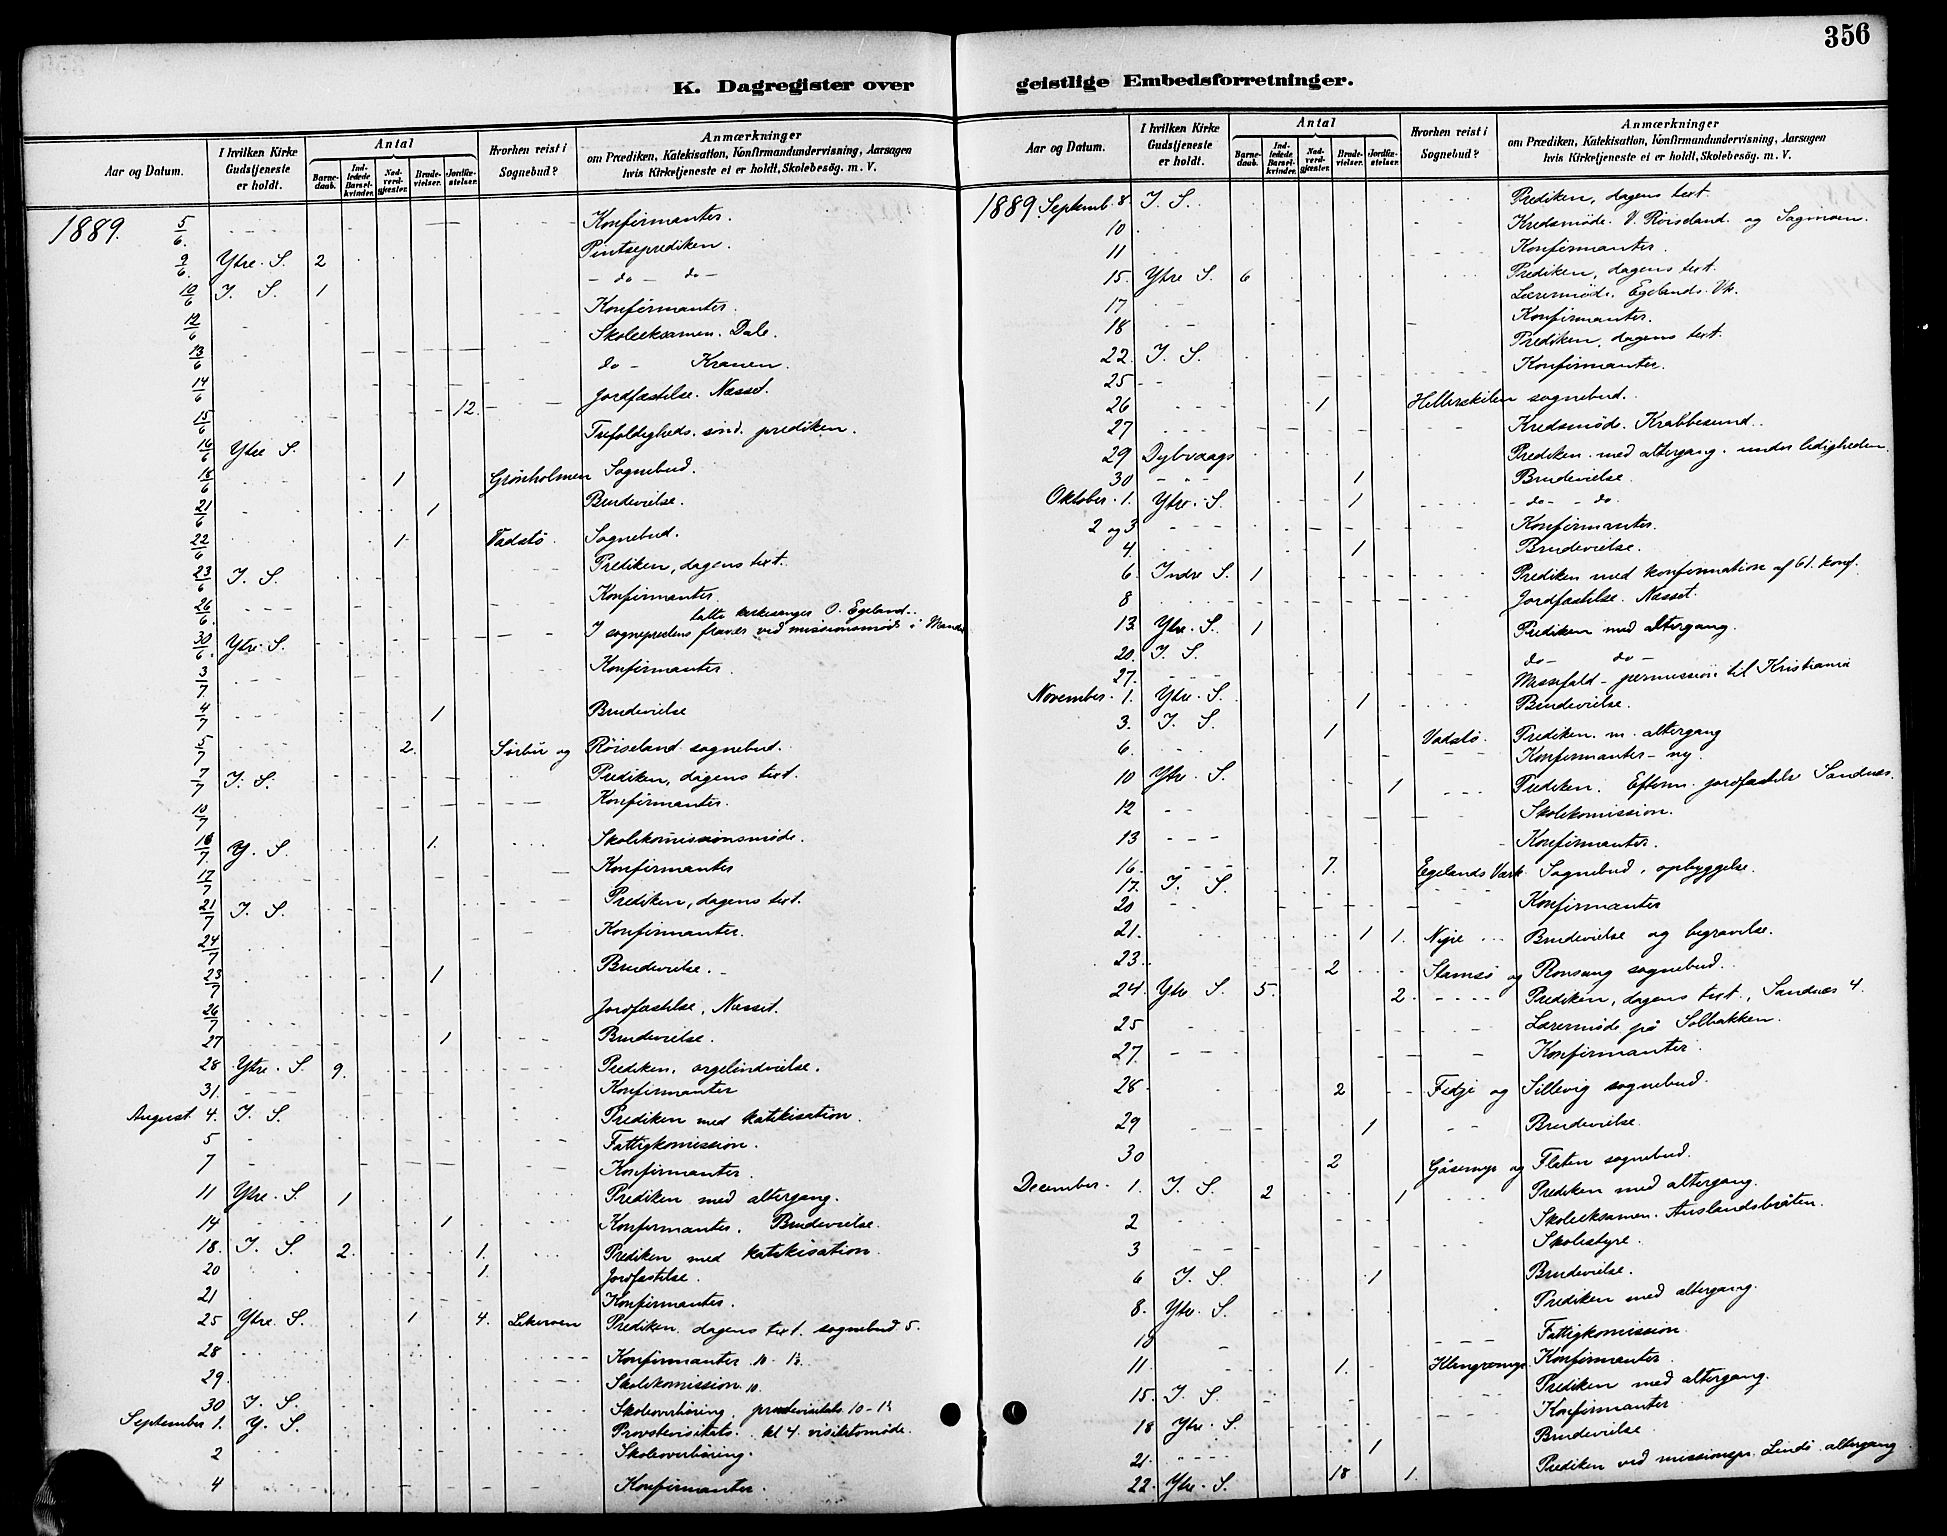 356
K. Dagregister over geistlige Embedsforretninger.
Aar og Datum. I hvilken Kirke Gudstjeneste er holdt. Antal Barnedaab. Indledede Barselkvinder. Nadverdgjester. Brudevielser. Jordfæstelser. Hvorhen reist i Sognebud? Anmærkninger om Prædiken, Katekisation, Konfirmandundervisning, Aarsagen hvis Kirketjeneste ei er holdt, Skolebesøg. m. V.
1889. 5/6. Konfirmanter.
9/6. Ytre. S. 2 Pintseprediken.
10/6 I. S. 1 – do – do –
12/6 Konfirmanter.
13/6 Skoleeksamen. Dale.
14/6 do – Kranen.
15/6 12. Jordfæstelse. Næsset.
16/6 Ytre S. Trefoldigheds. sønd. prediken.
18/6 1 Grønholmen Sognebud.
21/6 1 Brudevielse.
22/6 1. Vadstø. Sognebud.
23/6 I. S. Prediken, dagens text.
26/6. Konfirmanter.
30/6. Ytre. S. I sogneprestens fravær ved missionsmøde i Mandal
kirkesanger O. Egeland.
3/7. Konfirmanter.
4/7 1 Brudevielse
5/7 2. Sørbø og Røiseland sognebud.
7/7 I. S. Prediken, dagens text.
10/7 Konfirmanter.
16/7. Y. S. 1. Skolekomissionsmøde.
17/7 Konfirmanter
21/7 I. S. Prediken, dagens text.
24/7 Konfirmanter.
23/7 1 Brudevielse.
26/7 Jordfæstelse, Næsset.
27 1 Brudevielse.
28 Ytre. S. 9. Prediken, orgelindvielse.
31. Konfirmanter
August 4. I. S. Prediken med katekisation.
5 Fattigkomission.
7 Konfirmanter.
11 Ytre. S. 1 Prediken med altergang.
14 1 Konfirmanter. Brudevielse.
18. I. S. 2. 1. Prediken med katekisation.
20 1. Jordfæstelse.
21 Konfirmanter.
25 Ytre. S. 1 4. Prediken dagens text. sognebud 5.
28 Konfirmanter 10–1½.
29. Skolekomission 10.
30 I. S. Skoleoverhøring,
September 1. Y. S. Provstevisitats. kl 4. visitatsmøde.
2 Skoleoverhøring.
4 Konfirmanter.
Aar og Datum. I hvilken Kirke Gudstjeneste er holdt. Antal Barnedaab. Indledede Barselkvinder. Nadverdgjester. Brudevielser. Jordfæstelser. Hvorhen reist i Sognebud? Anmærkninger om Prædiken, Katekisation, Konfirmandundervisning, Aarsagen hvis Kirketjeneste ei er holdt, Skolebesøg. m. V.
1889. Septemb. 8. I. S. Prediken, dagens text.
10 Kredsmøde. V. Røisland. og Sagmoen.
11 Konfirmanter.
15. Ytre S. 6 Prediken, dagens text.
17 Lærermøde. Egelands Vk.
18 Konfirmanter.
22. I. S. Prediken, dagens text.
25 Konfirmanter.
26 1 Hellerskilen sognebud.
27 Kredsmøde. Krabbesund.
29 Dybvaags Prediken. med altergang. under ledigheden.
30 1 Brudevielse.
Oktober. 1. Ytre. S. 1 – do – – do.
2 og 3 Konfirmanter.
4. 1 Brudevielse.
6. Indre S. 1 Prediken med konfirmation af 61. konf.
8 Jordfæstelse. Næsset.
13. Ytre. S. 1 Prediken med altergang.
20. I. S. do – do –
27. Messefald – permission til Kristiania
November. 1. Ytre. S. 1 Brudevielse.
3. I. S. 1 Vadstø. Prediken. m. altergang
6. Konfirmanter – ny.
10 Ytre. S. 1 Prediken. Efterm. jordfæstelse Sandnæs.
12 Skolekomission.
13 Konfirmanter.
16. 7. Egelands Værk Sognebud, opbyggelse.
17. I. S.
20 Konfirmanter
21. 1 1. Brudevielse og begravelse.
23. 2 Stamsø og Ronsang sognebud.
24. Ytre S. 5. 2. Prediken, dagens text, Sandnæs 4.
25 Lærermøde på Solbakken.
27. Konfirmanter.
28 2 Fidje og Sillevig sognebud.
29 1 Brudevielse.
30 2 Gåsemyr og Flaten sognebud.
December. 1. I. S. 2 1 Prediken med altergang.
2 Skoleeksamen. Auslandsbråten.
3 Skolestyre.
6 I. S. 1 Brudevielse.
8. Ytre. S. Prediken med altergang.
10 Fattigkomission.
11 1. Konfirmanter.
15. I. S. Prediken med altergang.
18 Ytre. S. Konfirmanter
21. 1 Brudevielse
22. Ytre. S. 18 1. Prediken ved missionspr. Lindø. altergang